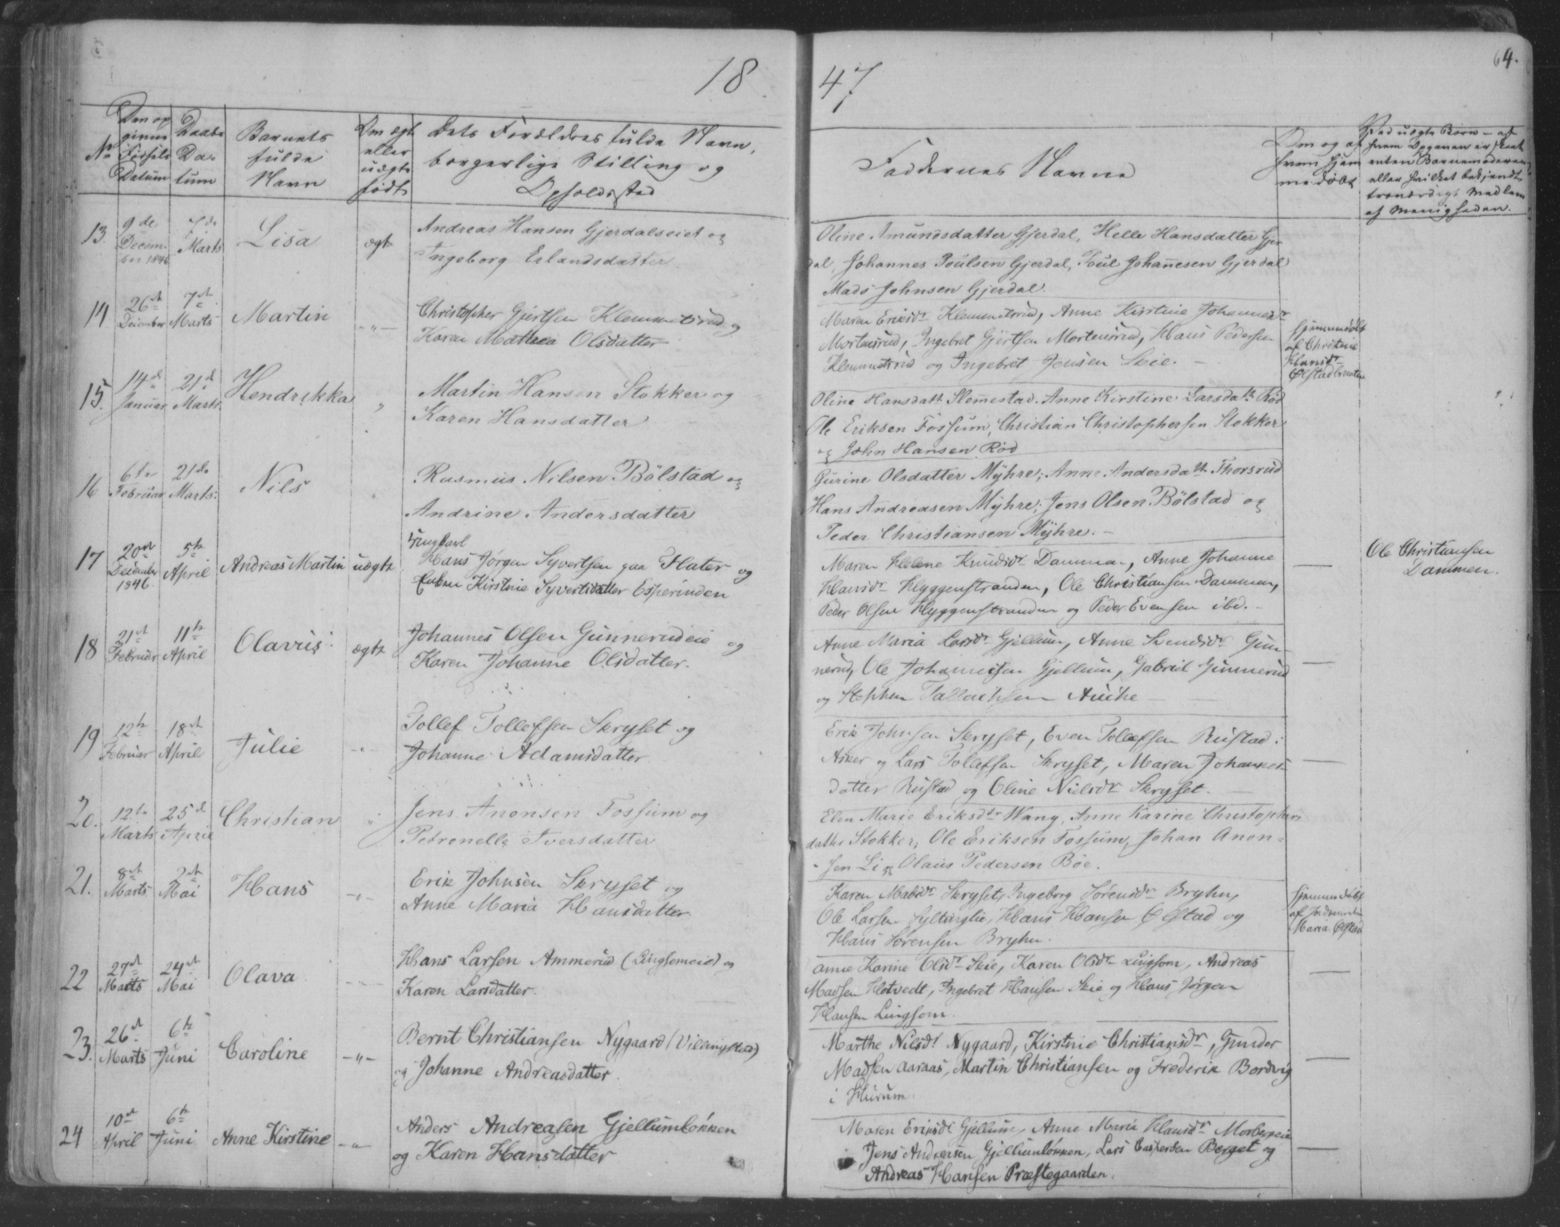 18 47
64.
No
Den op
givne
Fødsels
Datum
Daabs
Da-
tum
Barnets
fulde
Navn
Om ægte
eller
uægte
født
Dets Forældres fulde Navn,
borgerlige Stilling og
Opholdssted
Faddernes Navne
Om og af
hvem hjem
medøbt
af Menigheden.
13.
9de
Decem-
ber 1846
7de
Marts
Lisa
ægte
Andreas Hansen Gjerdalseiet og
Ingeborg Erlandsdatter
Oline Amundsdatter Gjerdal, Helle Hansdatter Gjer-
dal, Johannes Poulsen Gjerdal, Johannesen Gjerdal
Mads Johnsen Gjerdal.
14
26de
December
7de
Marts
Martin
-"-
Christopher Gjertsen Klemmetsrud og
Karen Mathea Olsdatter
Maren Eriksdr Klemmetsrud, Anne Kirstine Johannesdr
Mortensrud, Ingebret Gjertsen Mortensrud, Hans Pedersen
Klemmetsrud og Ingebret Jensen Skie. -
hjemmedøbt
af Christine
Hansdr
15.
14de
Januar
21de
Marts
Hendrikka
"
Martin Hansen Stokker og
Karen Hansdatter
Oline Hansdatt Slemestad. Anne Kirstine Larsdatt Rød
Ole Eriksen Fossum, Christian Christophersen Stokker
og John Hansen Rød
16
6te
Februar
21de
Marts.
Nils
Rasmus Nilsen Bölstad og
Andrine Andersdatter
Gurine Olsdatter Mÿhre; Anne Andersdatt Thorsrud
Hans Andreasen Mÿhre; Jens Olsen Bölstad og
Peder Christiansen Mÿhre. -
17
20de
December
1846
5te
April
Andreas Martin
uægte
Ungkarl
Hans Jørgen Syvertsen paa Slater og
Kirstine Syvertsdatter Esperinden
Maren Helene Knudsdr Dammen, Anne Johanne
Hansdr Klyggenstranden, Ole Christiansen Dammen,
Peder Olsen Klyggenstranden og Peder Evensen ibd. -
Ole Christiansen
Dammen.
18
21de
Februar
11te
April
Olavus
ægte
Johannes Olsen Gunnerudeie og
Karen Johanne Olsdatter.
Anne Maria Larsdr Gjellum, Anne Svendsdr Gun-
nerud, Ole Johannessen Gjellum, Gabriel Gunnerud
og Stephen
19
12te
Februar
18de
April
Julie
Tollef Tollefsen Skryset og
Johanne Adamsdatter
Erik Johnsen Skryset, Even Tollefsen Rustad i
Asker og Lars Tollefsen Skryset, Maren Johannes-
datter Rustad og Oline Nielsdr Skryset.
20.
12te
Marts
25de
April
Christian
Jens Anonsen Fossum og
Petronelle Iversdatter
Elen Marie Eriksdtr Wang, Anne Karine Christopher
datter Stokker, Ole Eriksen Fossum, Johan Anon-
sen Li og Olaus Pedersen Böe.
21.
8de
Marts
2de
Mai
Hans
-"-
Erik Johnsen Skryset og
Anne Maria Hansdatter
Karen Skryset, Ingeborg Sørensdr Bryhn,
Ole Larsen Hans Hansen Ølstad og
Hans Sørensen Bryhn.
hjemmedøbt
af Jordmoder
Maria
22
27de
Marts
24de
Mai
Olava
Hans Larsen Ammerud (Lingsomeiet) og
Karen Larsdatter.
Anne Karine Olsdr Skie, Karen Olsdr Lingsom, Andreas
Madsen Hotvedt, Ingebret Hansen Skie og Hans Jørgen
Hansen Lingsom.
23.
26de
Marts
6te
Juni
Caroline
-"-
Bernt Christiansen Nygaard (Villingstad)
og Johanne Andreasdatter.
Marthe Nilsdr Nygaard, Kirstine Christiansdr, Gunder
Madsen Aaraas, Martin Christiansen og Frederik Bordvig
i Hurum.
24
10de
April
6te
Juni
Anne Kirstine
-"-
Anders Andreasen Gjellumløkken
og Karen Hansdatter
Maren Eriksdr Gjellum, Anne Marie Hansdr
Jens Andersen Gjellumløkken, Lars Caspersen Berget og
Andreas Hansen Præstegaarden.